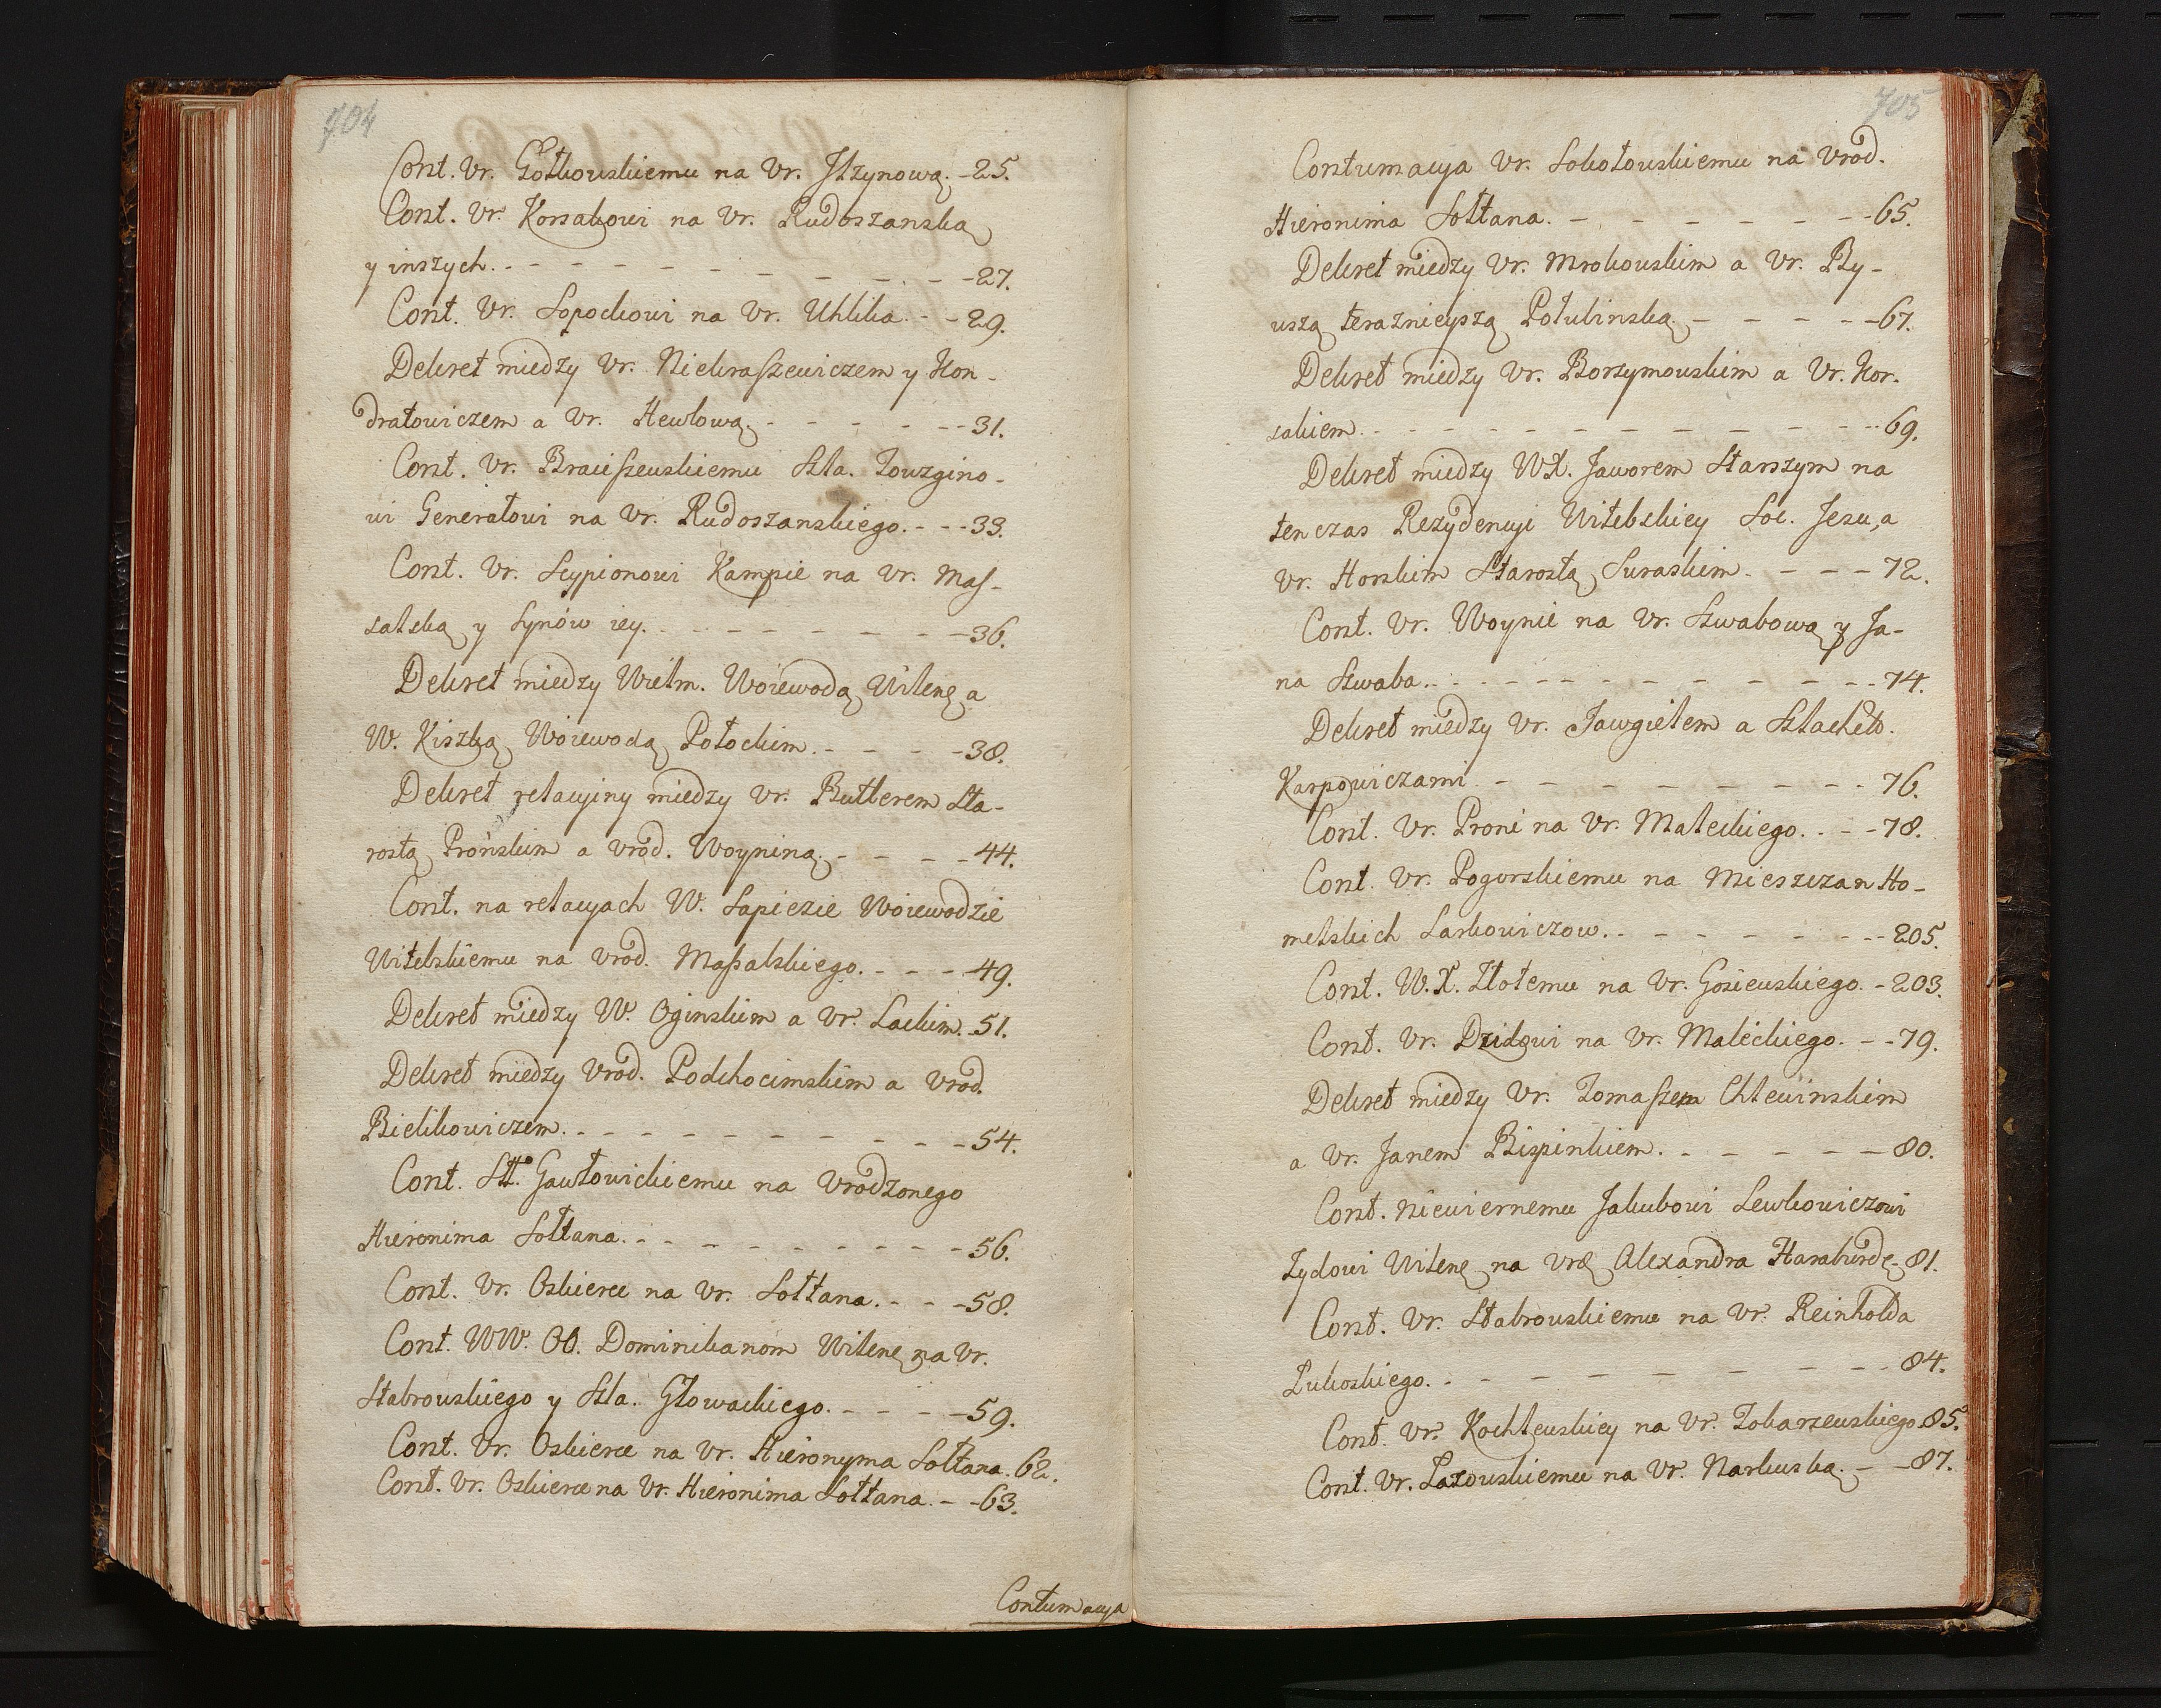 704
Cont. Vr. Gotkowskiemu na Vr. Ilzynową. - 25.
Cont. Vr. Korsakowi na Vr. Rudoszanską
y inszych. - - - - - - - - - - 27.
Cont. Vr. Łopockowi na Vr. Uhlika. - - 29.
Dekret miedzy Vr. Niekraszewiczem y Kon-
dratowiczem a Vr. Hewlową. - - - - - - 31.
Cont. Vr. Braieszewskiemu Szla. Towzgino-
wi Generałowi na Vr. Rudoszanskiego. - - - 33.
Cont. Vr. Scypionowi Kampie na Vr. Mas-
salską y Synów iey. - - - - - - - - 36.
Dekret miedzy Wielm. Woiewodą Wilenę a
W. Kiszką Woiewodą Połockim. - - - - 38.
Dekret relacyiny miedzy Vr. Butlerem Sta-
rostą Prónskim a Vrod. Woyniną. - - - - 44.
Cont. na relacyach W. Sapiezie Woiewodzie
Witebskiemu na Vrod. Massalskiego. - - - 49.
Dekret miedzy W. Oginskim a Vr. Lackim. - 51.
Dekret miedzy Vrod. Podchocimskim a Vrod.
Bielikowiczem. - - - - - - - - - - 54.
Cont. Szt. Gawłowickiemu na Vrodzonego
Hieronima Sołtana. - - - - - - - - - 56.
Cont. Vr. Oskierce na Vr. Sołtana. - - - 58.
Cont. WW. OO. Dominikanom Wilenę na Vr.
Stabrowskiego y Szla. Głowackiego. - - - - 59.
Cont. Vr. Oskierce na Vr. Hieronyma Sołtana. 62.
Cont. Vr. Oskierce na Vr. Hieronima Sołtana. - - 63.
Contumacya
705
Contumacya Vr. Sokołowskiemu na Vrod.
Hieronima Sołtana. - - - - - - - - 65.
Dekret miedzy Vr. Mrokowskim a Vr. By-
wszą teraznieyszą Potulinską. - - - - - 67.
Dekret miedzy Vr. Borzymowskim a Vr. Kor-
sakiem. - - - - - - - - - - - - 69.
Dekret miedzy WX. Jaworem Starszym na
tenczas Rezydencyi Witebskiey Soc. Jesu, a
Vr. Horskim Starostą Suraskim. - - - - 72.
Cont. Vr. Woynie na Vr. Szwabową y Ja-
na Szwaba. - - - - - - - - - - - 74.
Dekret miedzy Vr. Jawgielem a Szlachet.
Karpowiczami. - - - - - - - - - - 76.
Cont. Vr. Proni na Vr. Maleckiego. - - - 78.
Cont. Vr. Pogorskiemu na Mieszczan Ho-
melskich Sarkowiczow. - - - - - - - - 205.
Cont. W.X. Złotemu na Vr. Gosiewskiego. - 203.
Cont. Vr. Dzidowi na Vr. Maleckiego. - - 79.
Dekret miedzy Vr. Tomaszem Chlewinskim
a Vr. Janem Bispinkiem. - - - - - - 80.
Cont. Niewiernemu Jakubowi Lewkowiczowi
Zydowi Wilenę na Vrę Alexandra Haraburdę - 81.
Cont. Vr. Stabrowskiemu na Vr. Reinholda
Pukoskiego. - - - - - - - - - - 84.
Cont. Vr. Kochlewskiey na Vr. Tokarzewskiego. 85.
Cont. Vr. Łazowskiemu na Vr. Narkuską. - - 87.